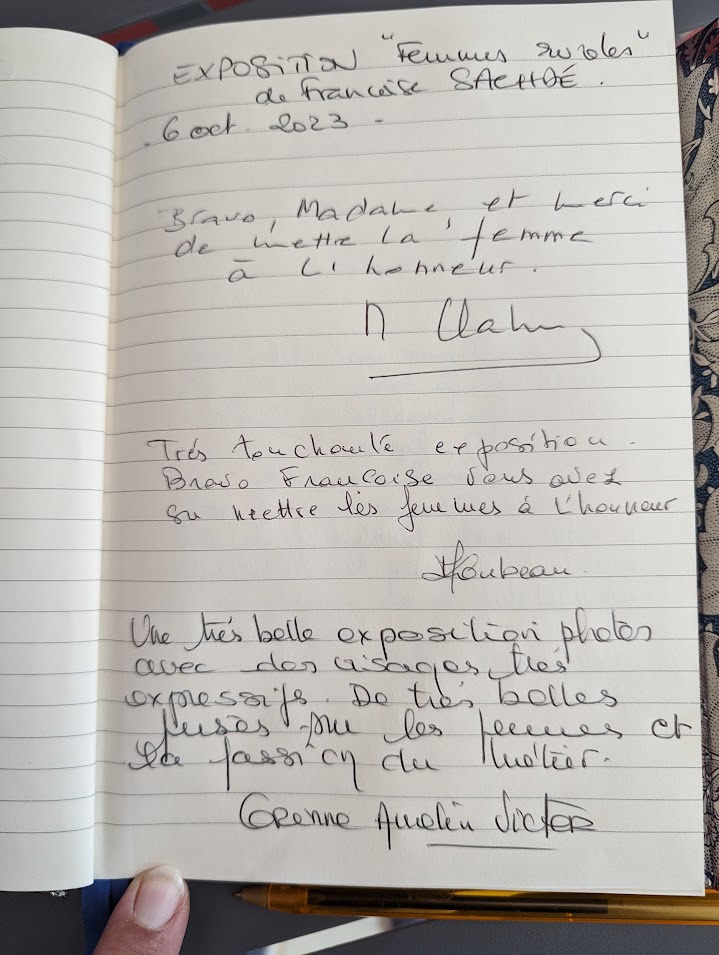 EXPOSITION "Femmes rurales"
de Francoise SACHDÉ.
6 oct. 2023 -
Bravo, Madame, et merci
de mettre la femme
à l'honneur.
Trés touchante exposition.
Bravo Françoise vous avez
su mettre les femmes à l'honneur
Une trés belle exposition photos
avec des visages trés
expressifs. De trés belles
sur les femmes et
la passion du métier.
Corenne Aurelien Victor